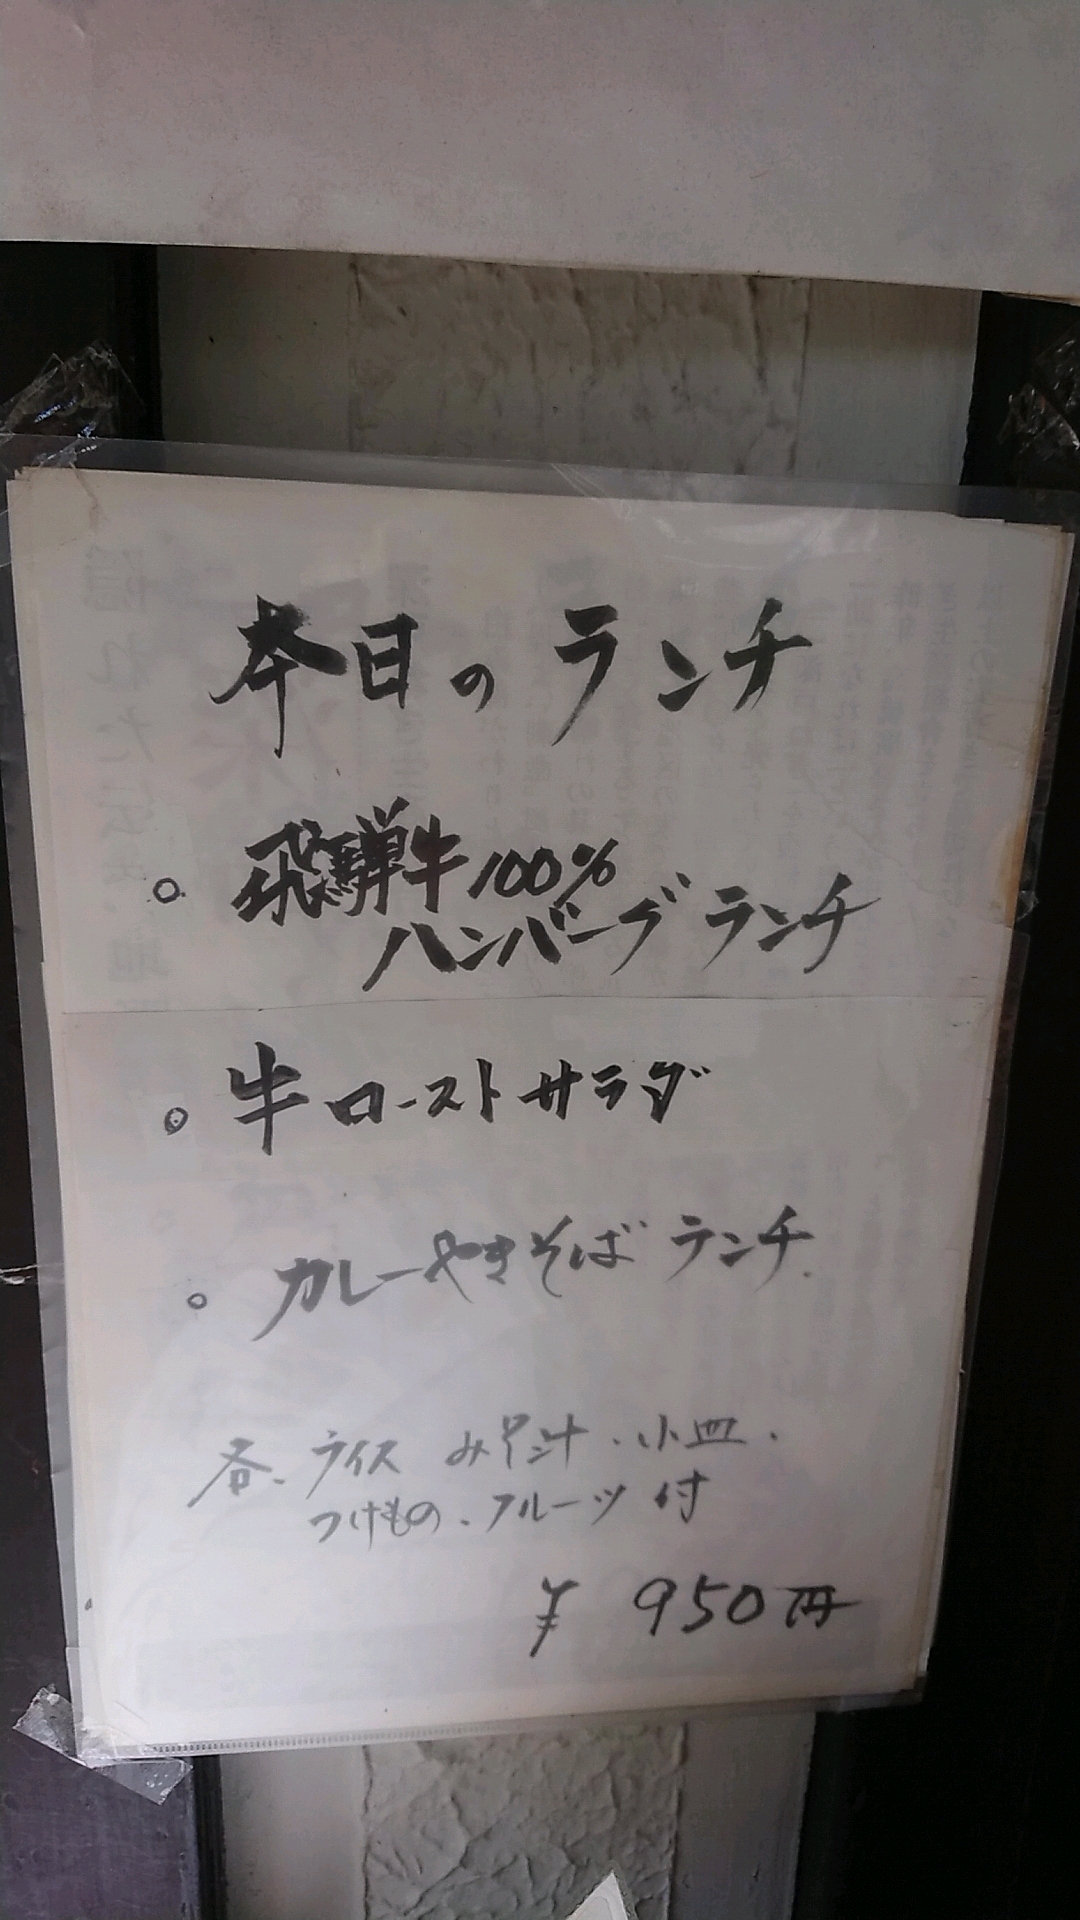 本日のランチ
。飛騨牛100%
ハンバーグランチ
。牛ローストサラダ
。カレーやきそばランチ.
各、ライス みそ汁・小皿・
つけもの、フルーツ付
¥ 950円